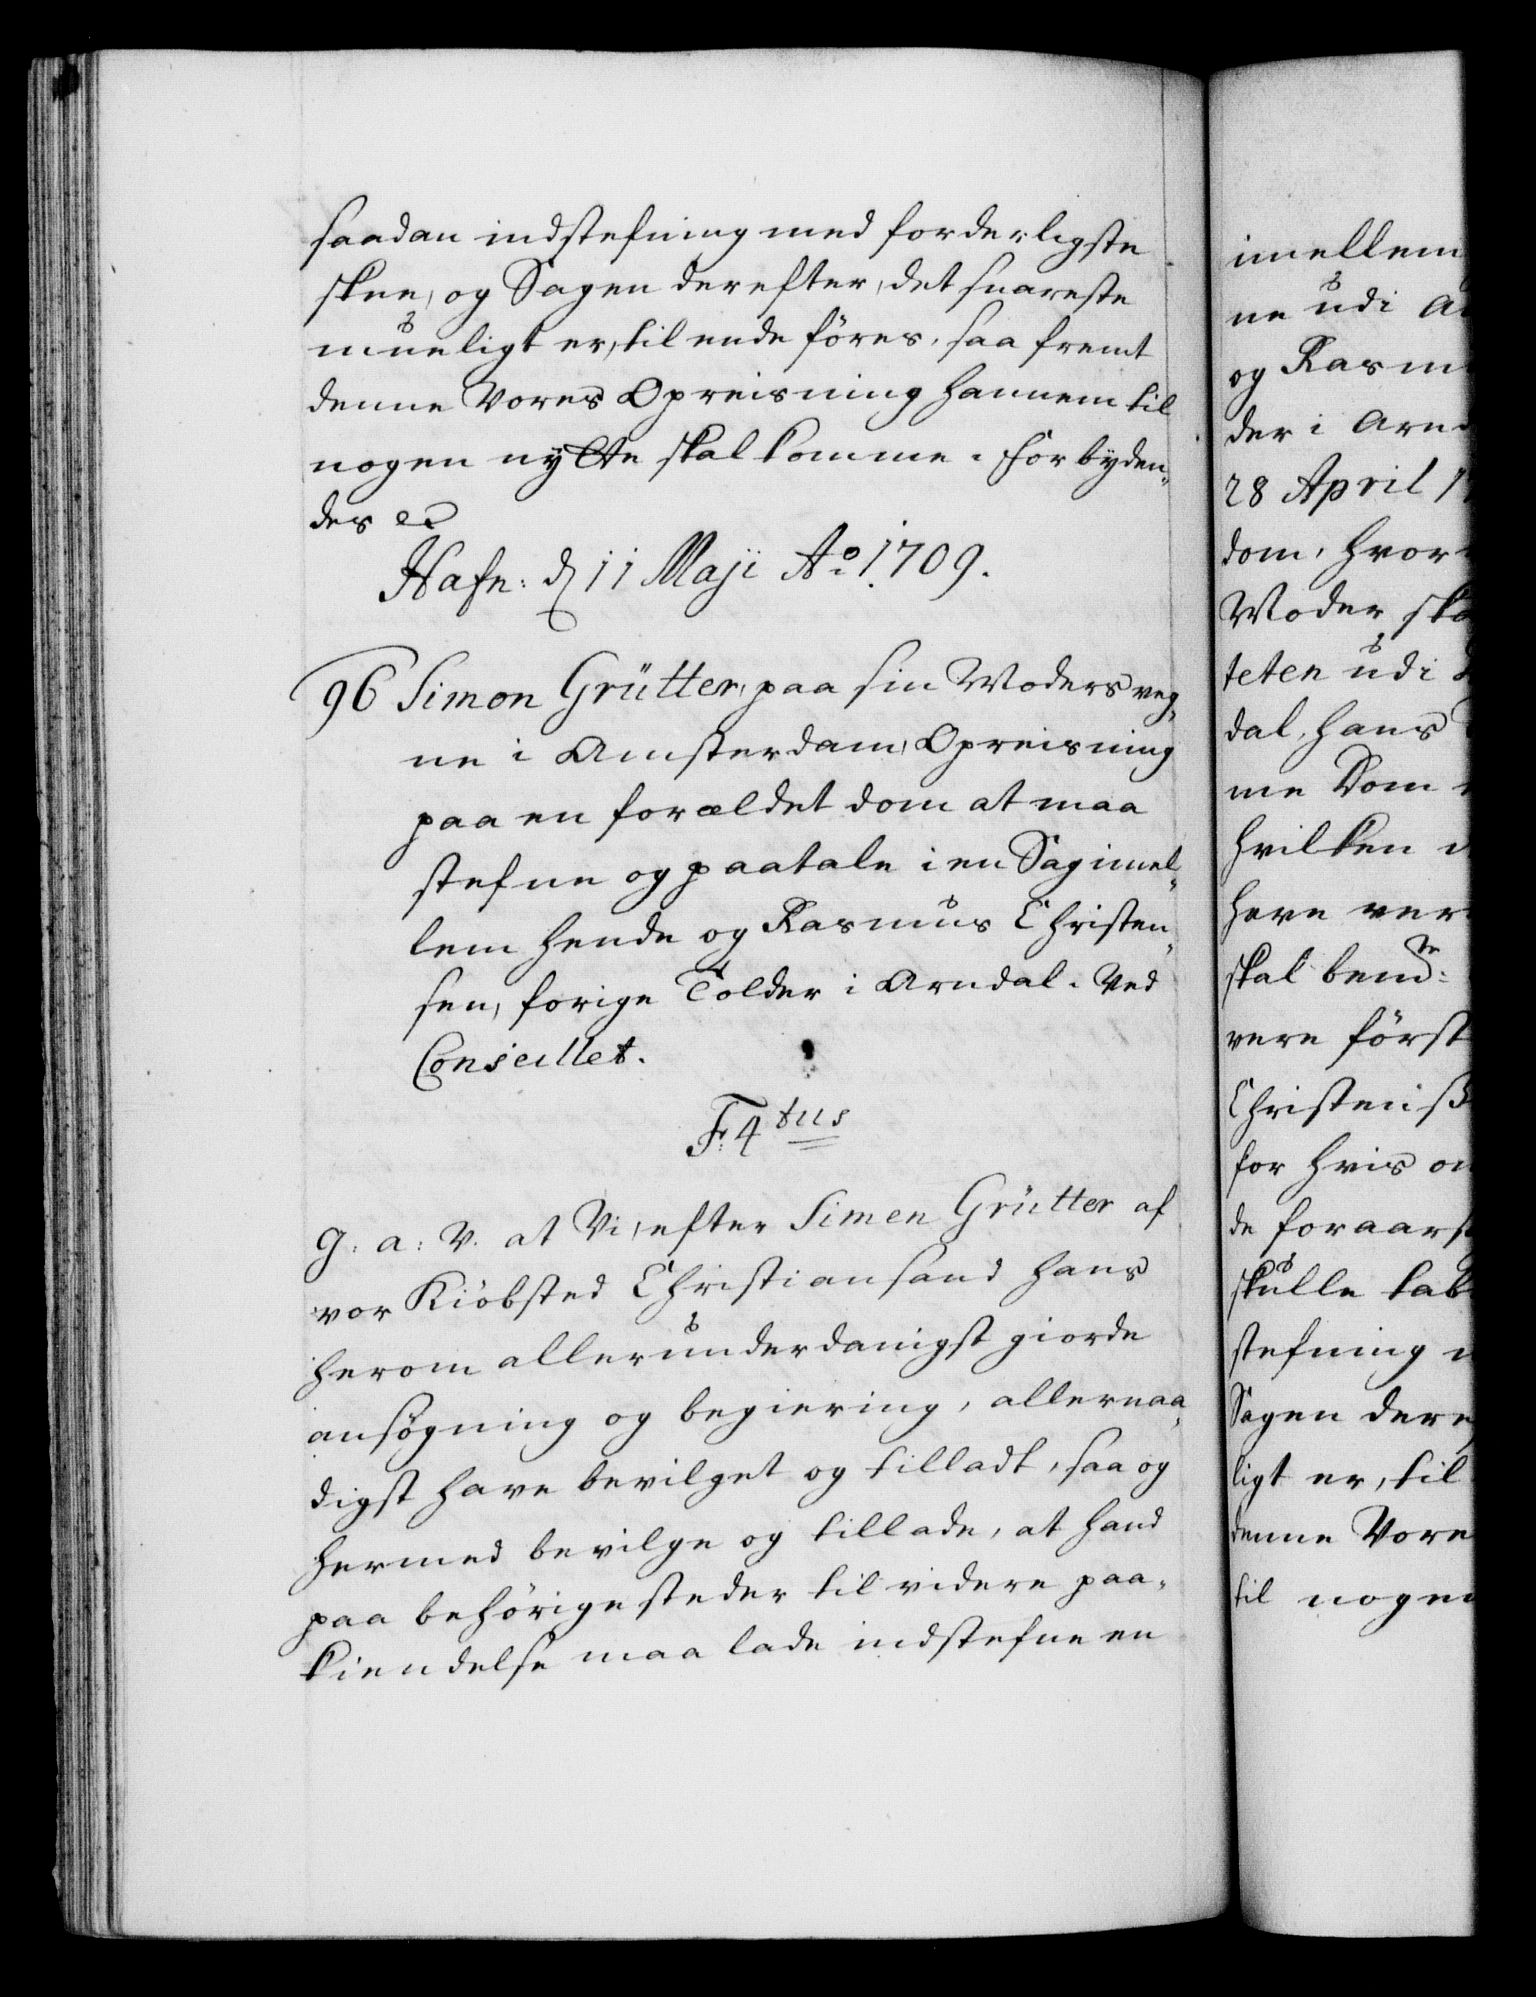 saadan indstefning med forderligste
skee, og Sagen derefter, det snareste
mueligt er, til ende föres, saa fremt
denne Vores Opreisning hannem til
nogen nytte skal komme. Forbyden-
des &c
Hafn: d 11 Maji Ao. 1709.
96 Simon Grütter, paa sin Moders veg-
ne i Amsterdam, Opreisning
paa en forældet dom at maa
stefne og paatale i en Sag imel-
lem hende og Rasmus Christen-
sen, forige Tolder i Arndal. Ved
Conseillet.
F: 4tus
G: a: V. at Vi, efter Simen Grütter af
vor Kiöbsted Christiansand hans
herom allerunderdanigst giorde
ansøgning og begiering, allernaa-
digst have bevilget og tilladt, saa og
hermed bevilge og tillade, at hand
paa behörige steder til videre paa-
kiendelse maa lade indstefne en
imellem
ne udi
og Rasm
der i Arn
28 April 1
dom, hvor
Moder ska
teten udi
dal, hans
me Dom
hvilken
have ver
skal bemte:
vere först
Christenss
for hvis
de foraars
skulle tab
stefning
Sagen der
ligt er, til
denne Vore
til nogen